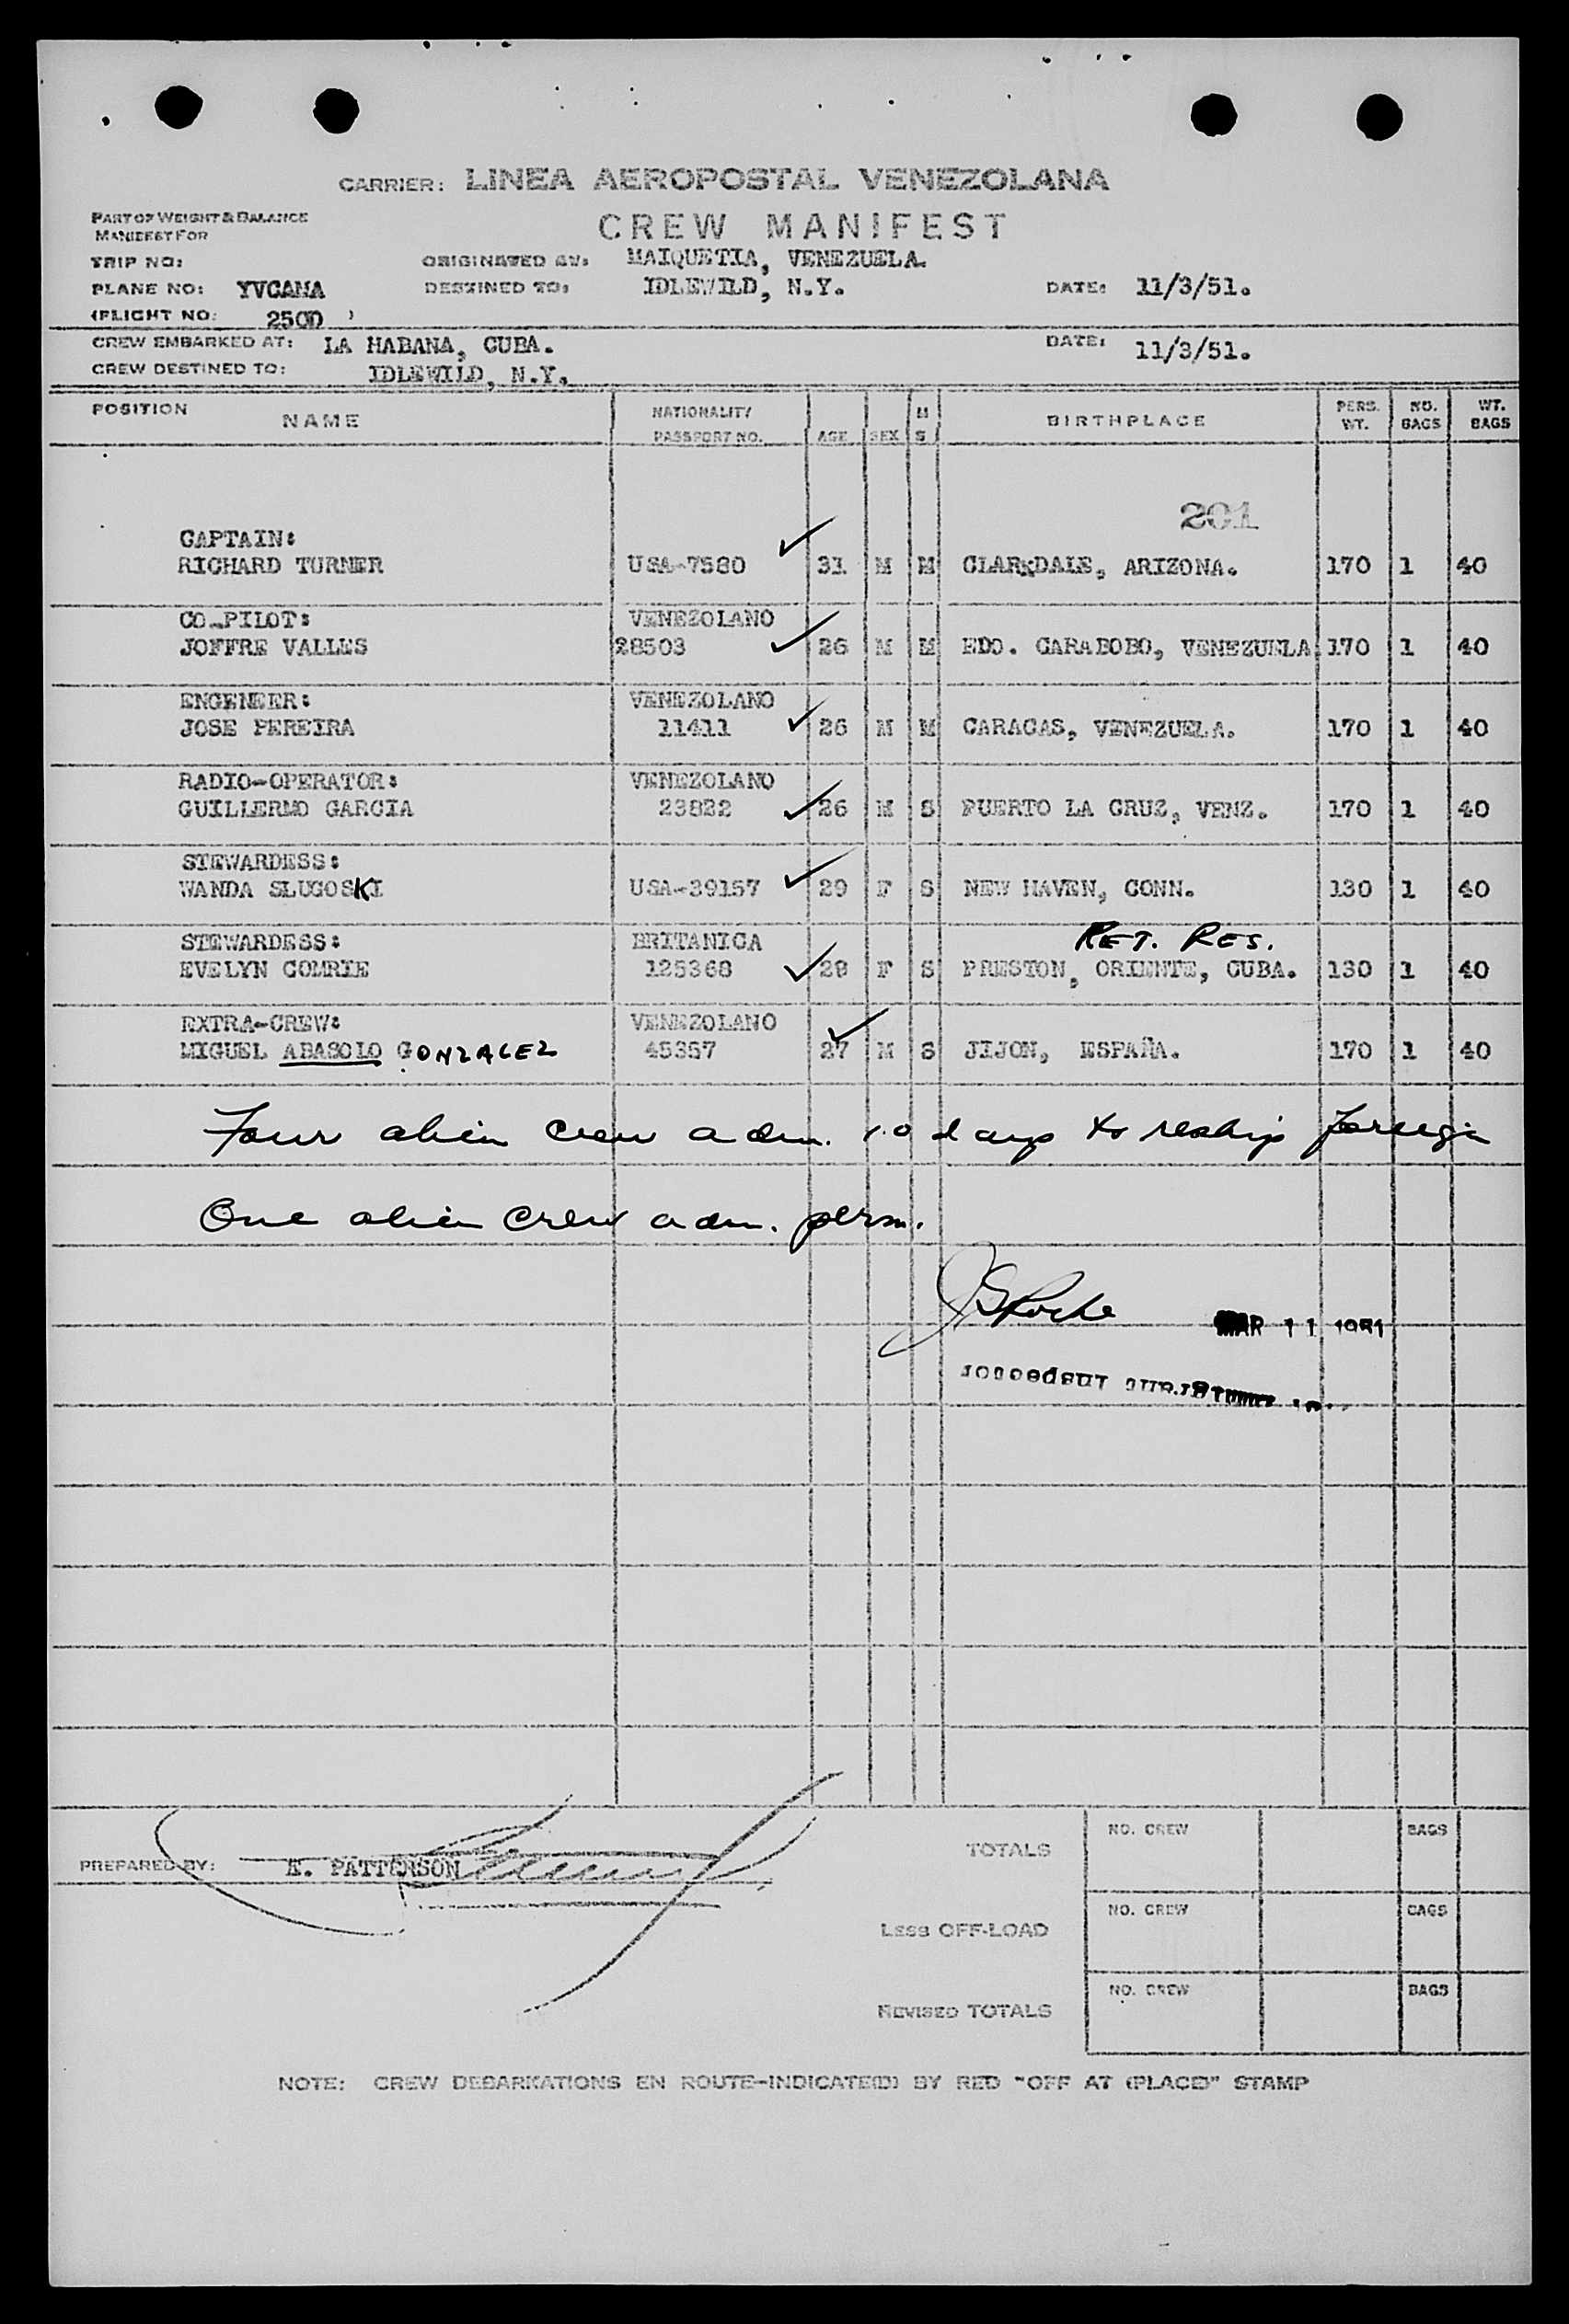 CARRIER: LINEA AEROPOSTAL VENEZOLANA
PART OF WEIGHT & BALANCE
MANIFEST FOR
CREW MANIFEST
TRIP NO: ORIGINATED AT: MAIQUETIA, VENEZUELA.
PLANE NO: YVCAMA DESTINED TO: IDLEWILD, N.Y. DATE: 11/3/51.
(FLIGHT NO: 250D )
CREW EMBARKED AT: LA HABANA, CUBA. DATE: 11/3/51.
CREW DESTINED TO: IDLEWILD, N.Y.
POSITION NAME NATIONALITY PASSPORT NO. AGE SEX M S BIRTHPLACE PERS. WT. NO. BAGS WT. BAGS
201
CAPTAIN:
RICHARD TURNER USA-7580 31 M M CLARKDALE, ARIZONA. 170 1 40
CO-PILOT: VENEZOLANO
JOFFRE VALLES 28503 26 M M EDO. CARABOBO, VENEZUELA. 170 1 40
ENGENEER: VENEZOLANO
JOSE PEREIRA 11411 26 M M CARACAS, VENEZUELA. 170 1 40
RADIO-OPERATOR: VENEZOLANO
GUILLERMO GARCIA 23822 26 M S PUERTO LA CRUZ, VENZ. 170 1 40
STEWARDESS:
WANDA SLUGOSKI USA-39157 29 F S NEW HAVEN, CONN. 130 1 40
STEWARDESS: BRITANICA RET. RES.
EVELYN COMRIE 125368 28 F S PRESTON, ORIENTE, CUBA. 130 1 40
EXTRA-CREW: VENEZOLANO
MIGUEL ABASOLO GONZALEZ 45357 27 M S JIJON, ESPAÑA. 170 1 40
Four alien crew adm. 10 days to reship foreign
One alien crew adm. perm.
MAR 11 1951
Immigrant Inspector
TOTALS NO. CREW BAGS
PREPARED BY: E. PATTERSON
Less OFF-LOAD NO. CREW BAGS
REVISED TOTALS NO. CREW BAGS
NOTE: CREW DEBARKATIONS EN ROUTE-INDICATE(D) BY RED "OFF AT (PLACE)" STAMP